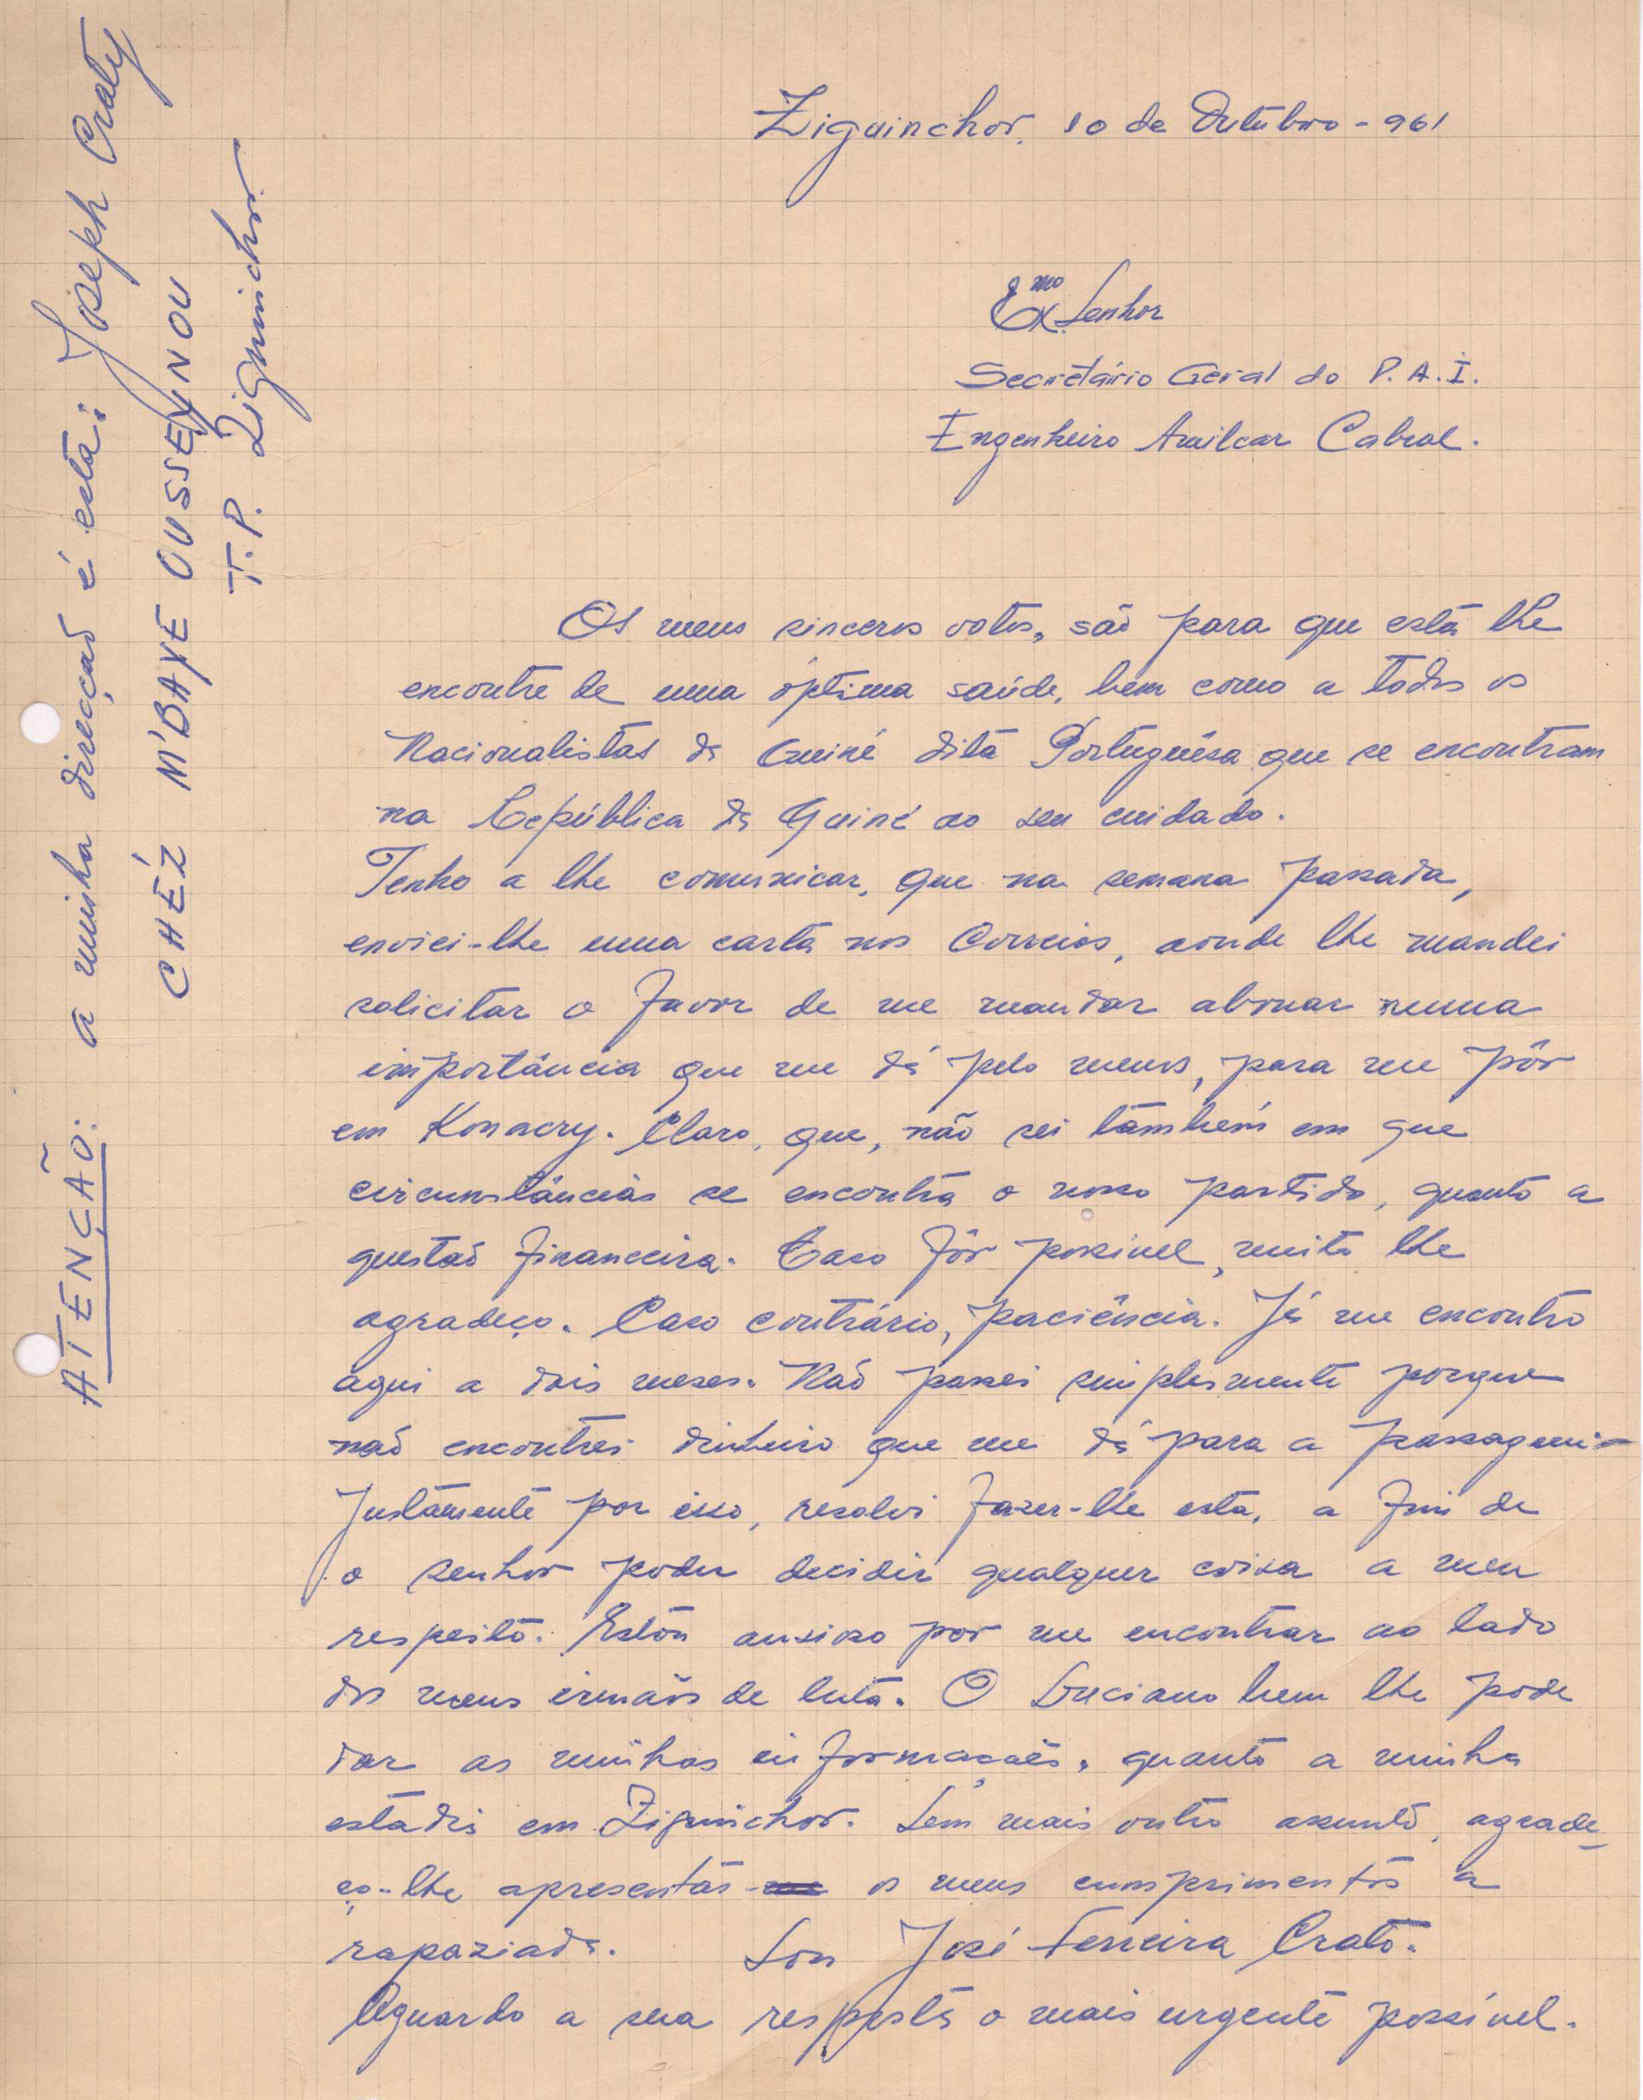 Ziguinchor, 10 de Outubro - 961
Exmo Senhor
Secretário Geral do P.A.I.
Engenheiro Amilcar Cabral.
Os meus sinceros votos, são para que está lhe
encontre de uma óptima saúde, bem como a todos os
Nacionalistas da Guiné dita Portuguêsa que se encontram
na República da Guiné ao seu cuidado.
Tenho a lhe comunicar, que na semana passada,
enviei-lhe uma carta nos Correios, aonde lhe mandei
solicitar o favor de me mandar abonar numa
importância que me dá pelo menos, para me pôr
em Konacry. Claro, que, não sei também em que
circunstâncias se encontra o nosso partido, quanto a
questaõ financeira. Caso fôr possivel, muito lhe
agradeço. Caso contrário, paciência. Já me encontro
aqui a dois meses. Naõ passei simplesmente porque
naõ encontrei dinheiro que me dá para a passagem -
Justamente por isso, resolvi fazer-lhe esta, a fim de
o senhor poder decidir qualquer coisa a meu
respeito. Estou ansioso por me encontrar ao lado
dos meus irmaõs de luta. O Luciano bem lhe pode
dar as minhas informaçaões, quanto a minha
estadia em Ziguinchor. Sem mais outro assunto, agrade-
ço-lhe apresentar os meus cumprimentos a
rapaziada. Sou José Ferreira Crato.
Aguardo a sua resposta o mais urgente possível.
ATENÇÃO: a minha direcçaõ é esta: Joseph Craty
CHÉZ M'BAYE OUSSEYNOU
T.P. Ziguinchor